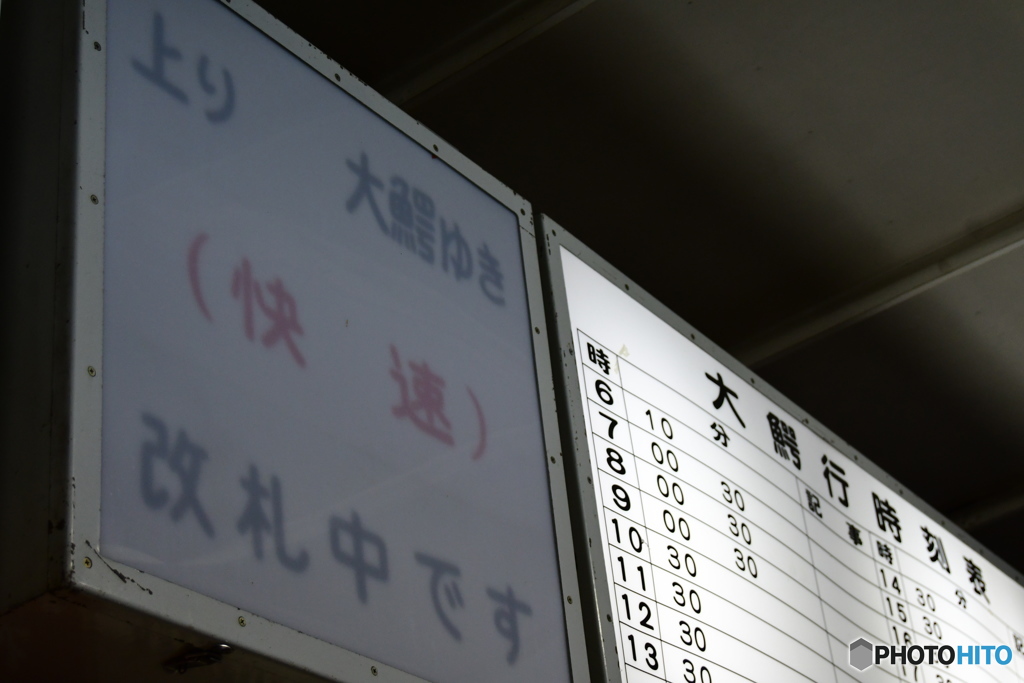 上り
大鰐ゆき
(快 速)
改札中です
大鰐行時刻表
時 分 記事 時 分
6 10
7 00 30
8 00 30
9 00 30
10 30
11 30
12 30
13 30
14 30
15 30
16
17
PHOTOHITO